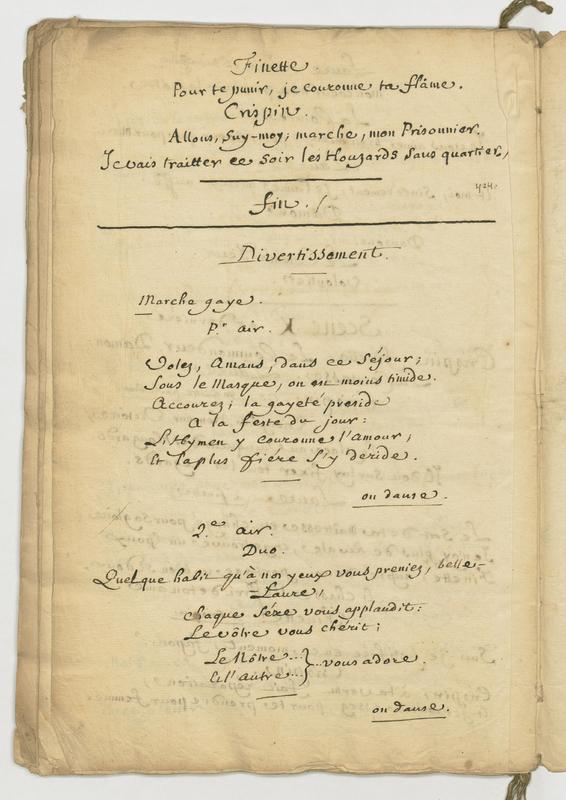 Finette
Pour te punir, je couronne ta flâme.
Crispin.
Allons, Suy-moy; marche, mon Prisonnier.
Je vais traitter ce soir les Houzards sans quartier,
424.
fin. /.
Divertissement.
Marche gaye.
Pr. air.
Volez, Amans, dans ce Séjour;
Sous le Masque, on en moins timide.
Accourez; la gayeté preside
A la feste du jour:
L'Hymen y couronne l'amour;
Et la plus fiére S'y déride.
on danse.
2e. air.
Duo.
Quelque habit qu'à nos yeux vous preniez, belle-
-Laure,
Chaque Séxe vous applaudit:
Le vôtre vous chérit;
Le Nôtre...}...vous adore.
Et l'autre...
on danse.